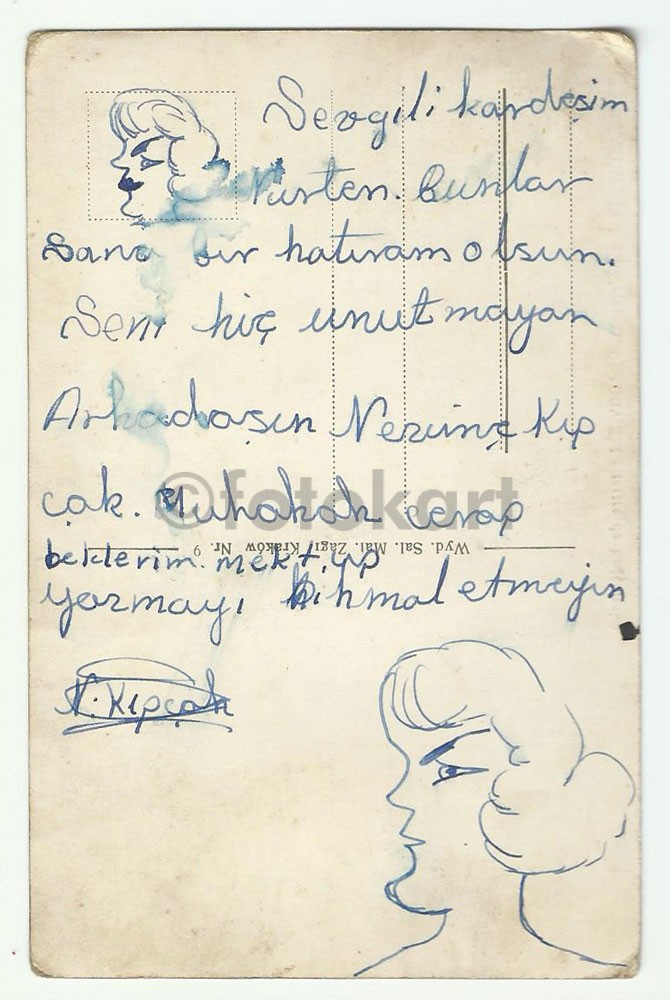 Sevgili kardeşim
Nurten. Bunlar
Sana bir hatıram olsun.
Seni hiç unutmayan
Arkadaşın Nezinç Kıp
çak. Muhakak cevap
Wyd. Sal. Mal. Zagr. Kraków Nr. 9
beklerim. mektup
yazmayı ihmal etmeyin
N. Kıpçak
©fotokart